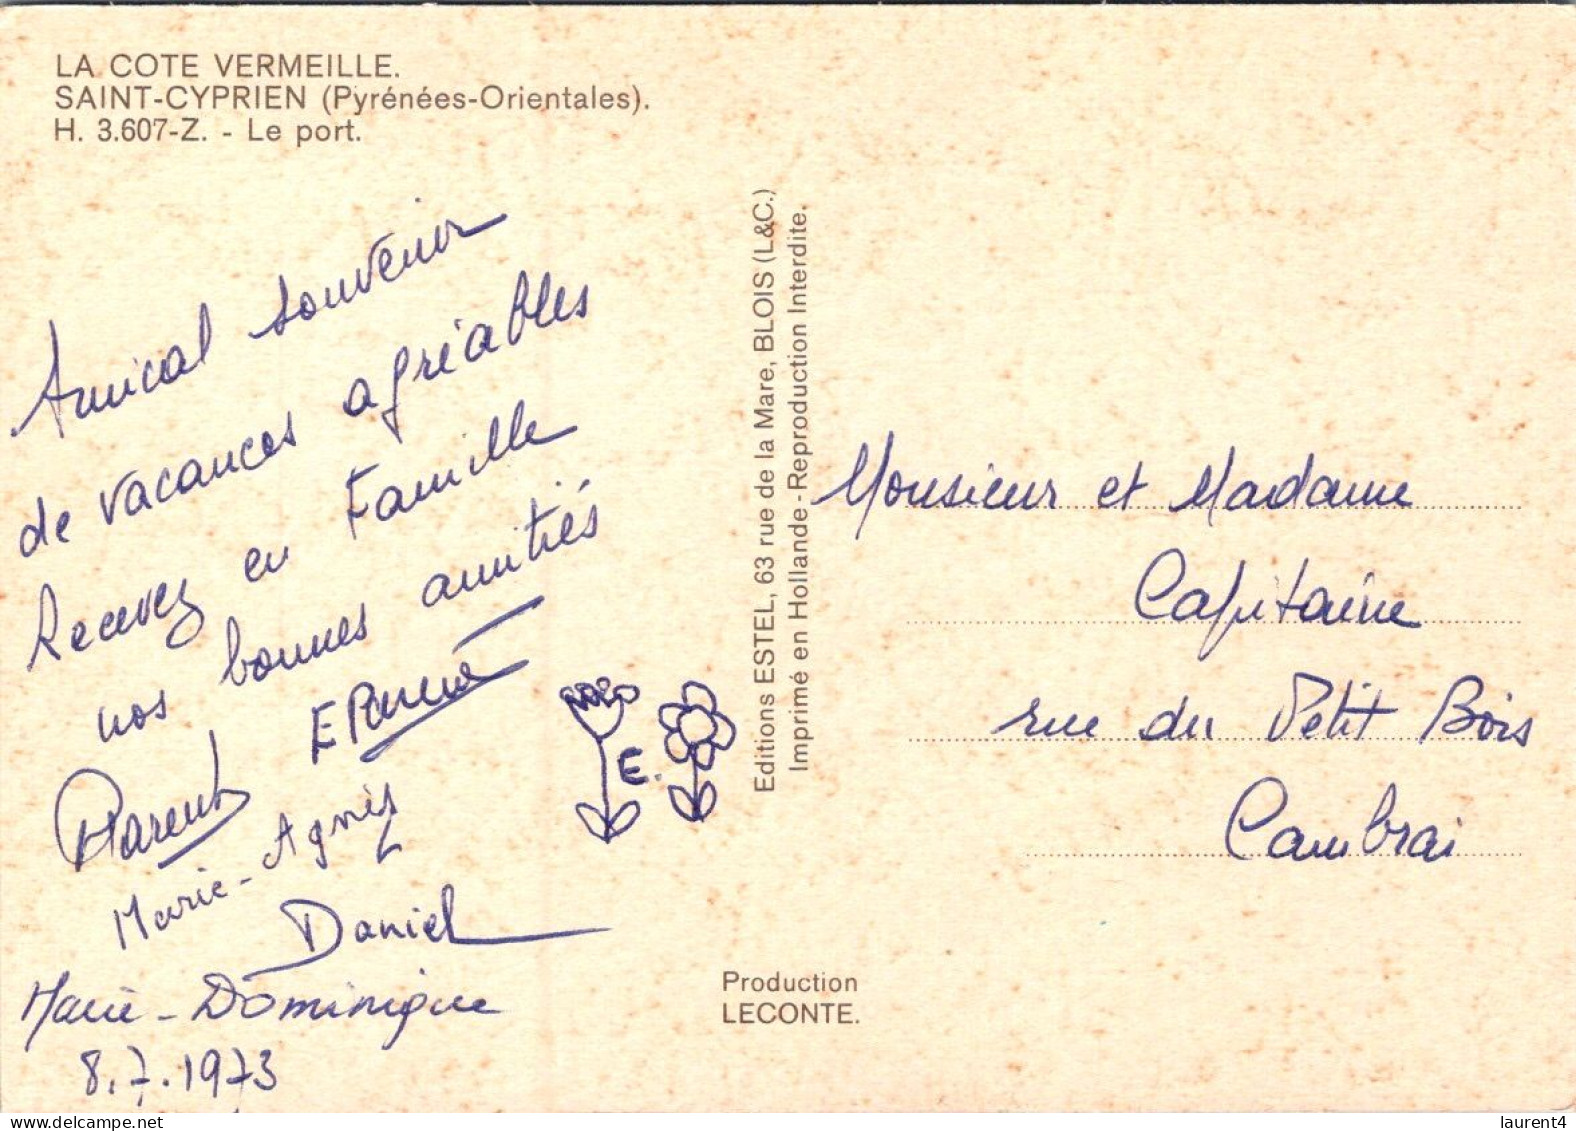 LA COTE VERMEILLE.
SAINT-CYPRIEN (Pyrénées-Orientales).
H. 3.607-Z. - Le port.
Amical souvenir
de vacances agréables
Recevez en Famille
nos bonnes amitiés
E Parent
Parent
Marie-Agnès
Daniel
Marie-Dominique
8.7.1973
E.
Editions ESTEL, 63 rue de la Mare, BLOIS (L&C.)
Imprimé en Hollande - Reproduction Interdite.
Production
LECONTE.
Monsieur et Madame
Capitaine
rue du Petit Bois
Cambrai
www.delcampe.net
laurent4